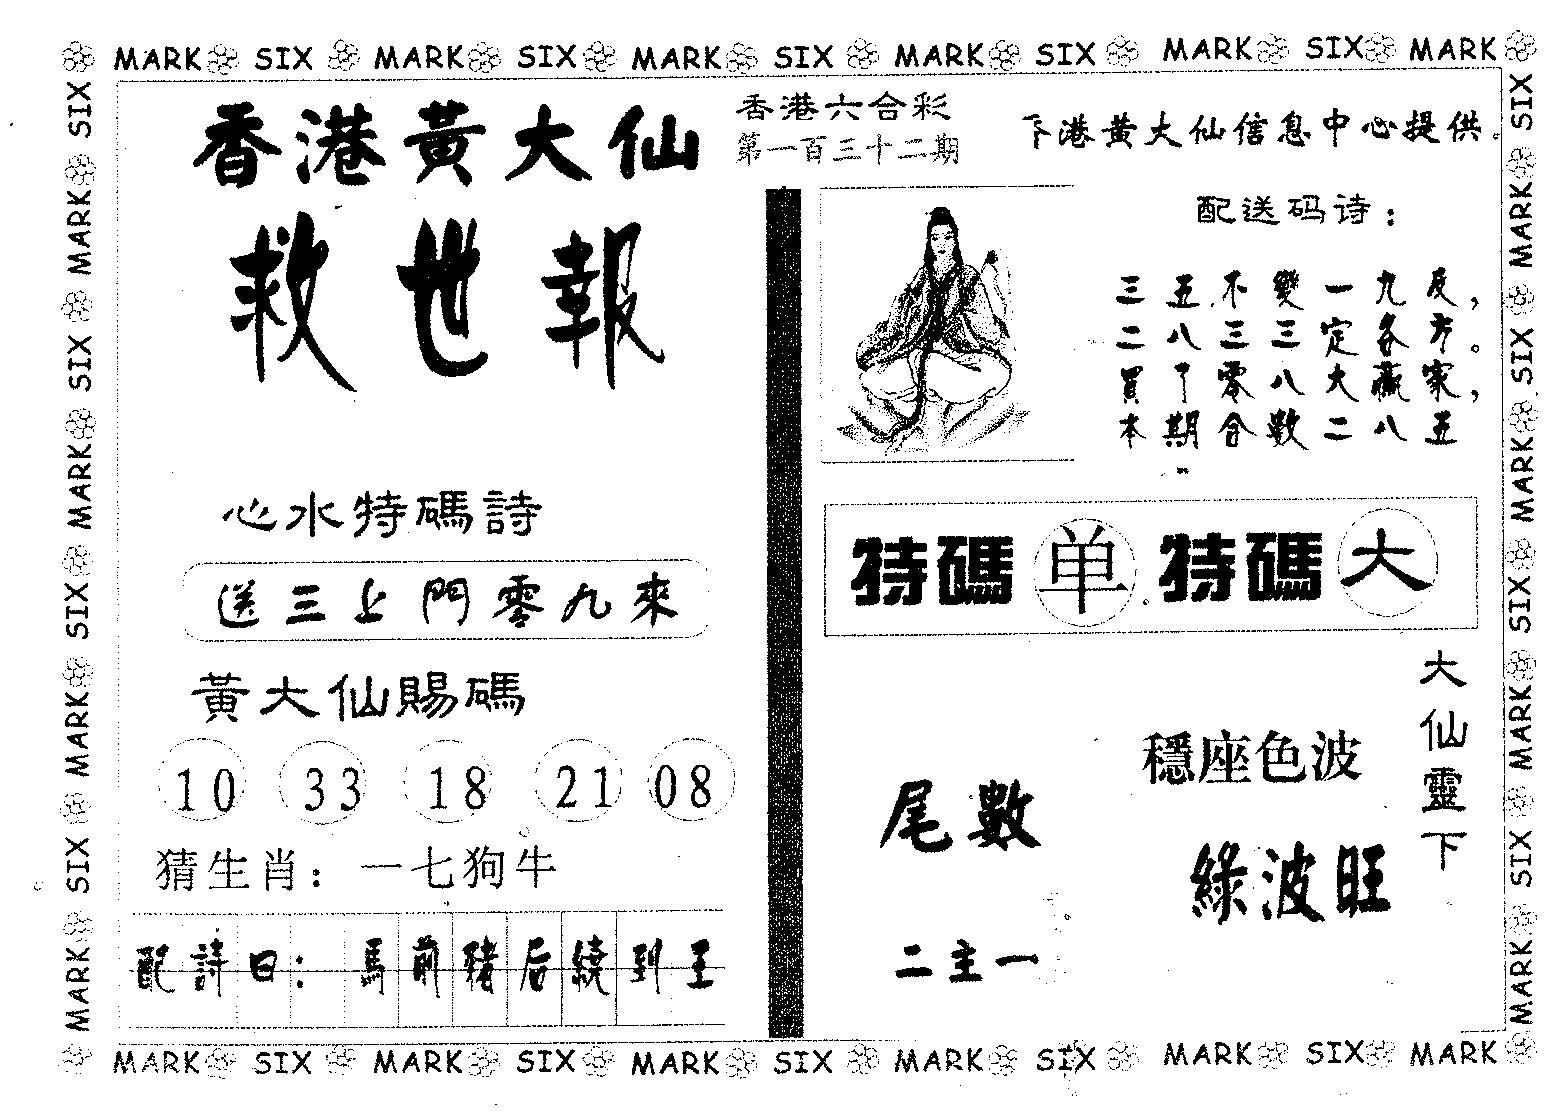 MARK SIX MARK SIX MARK SIX MARK SIX MARK SIX MARK
香港黃大仙
救世報
心水特碼詩
送三上門零九來
黃大仙賜碼
10 33 18 21 08
猜生肖：一七狗牛
配詩曰：馬前豬后繞到王
香港六合彩
第一百三十二期
港黃大仙信息中心提供。
配送码诗：
三五不變一九反，
二八三三定各方。
買了零八大贏家，
本期合數二八五
特碼 单 特碼 大
大仙靈下
穩座色波
綠波旺
尾數
二主一
MARK SIX MARK SIX MARK SIX MARK SIX MARK SIX MARK
SIX MARK SIX MARK SIX MARK SIX MARK
SIX MARK SIX MARK SIX MARK SIX MARK